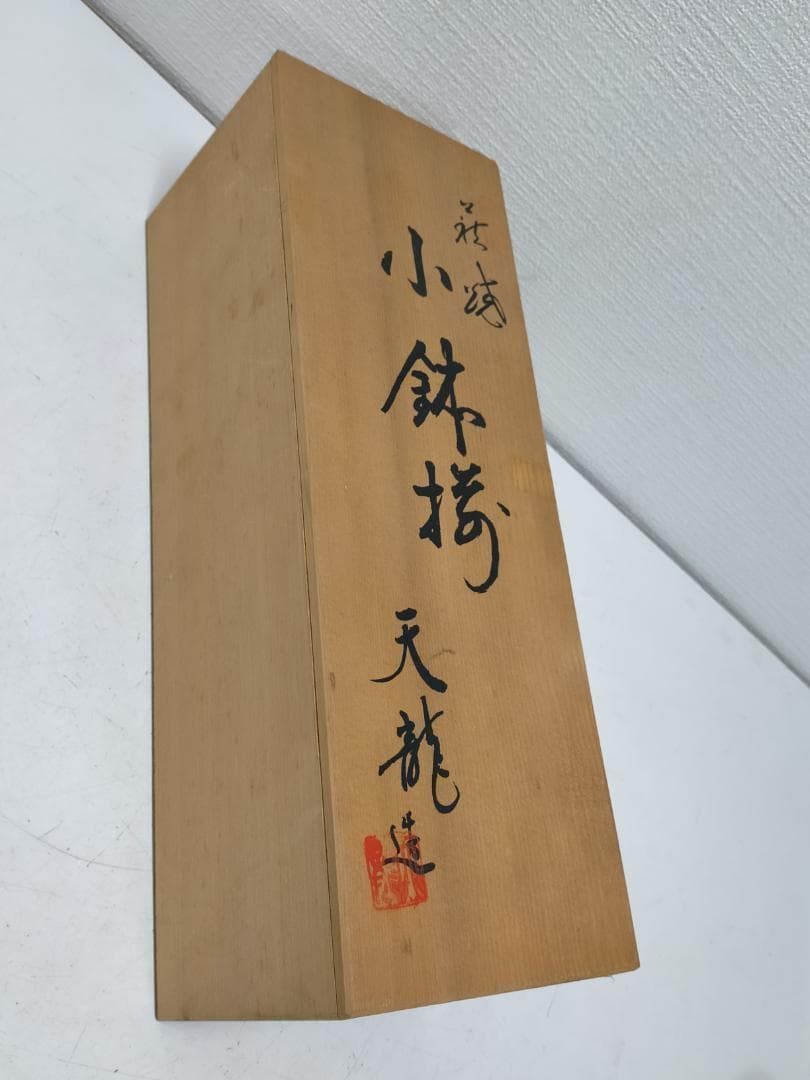 萩焼
小鉢揃
天龍造